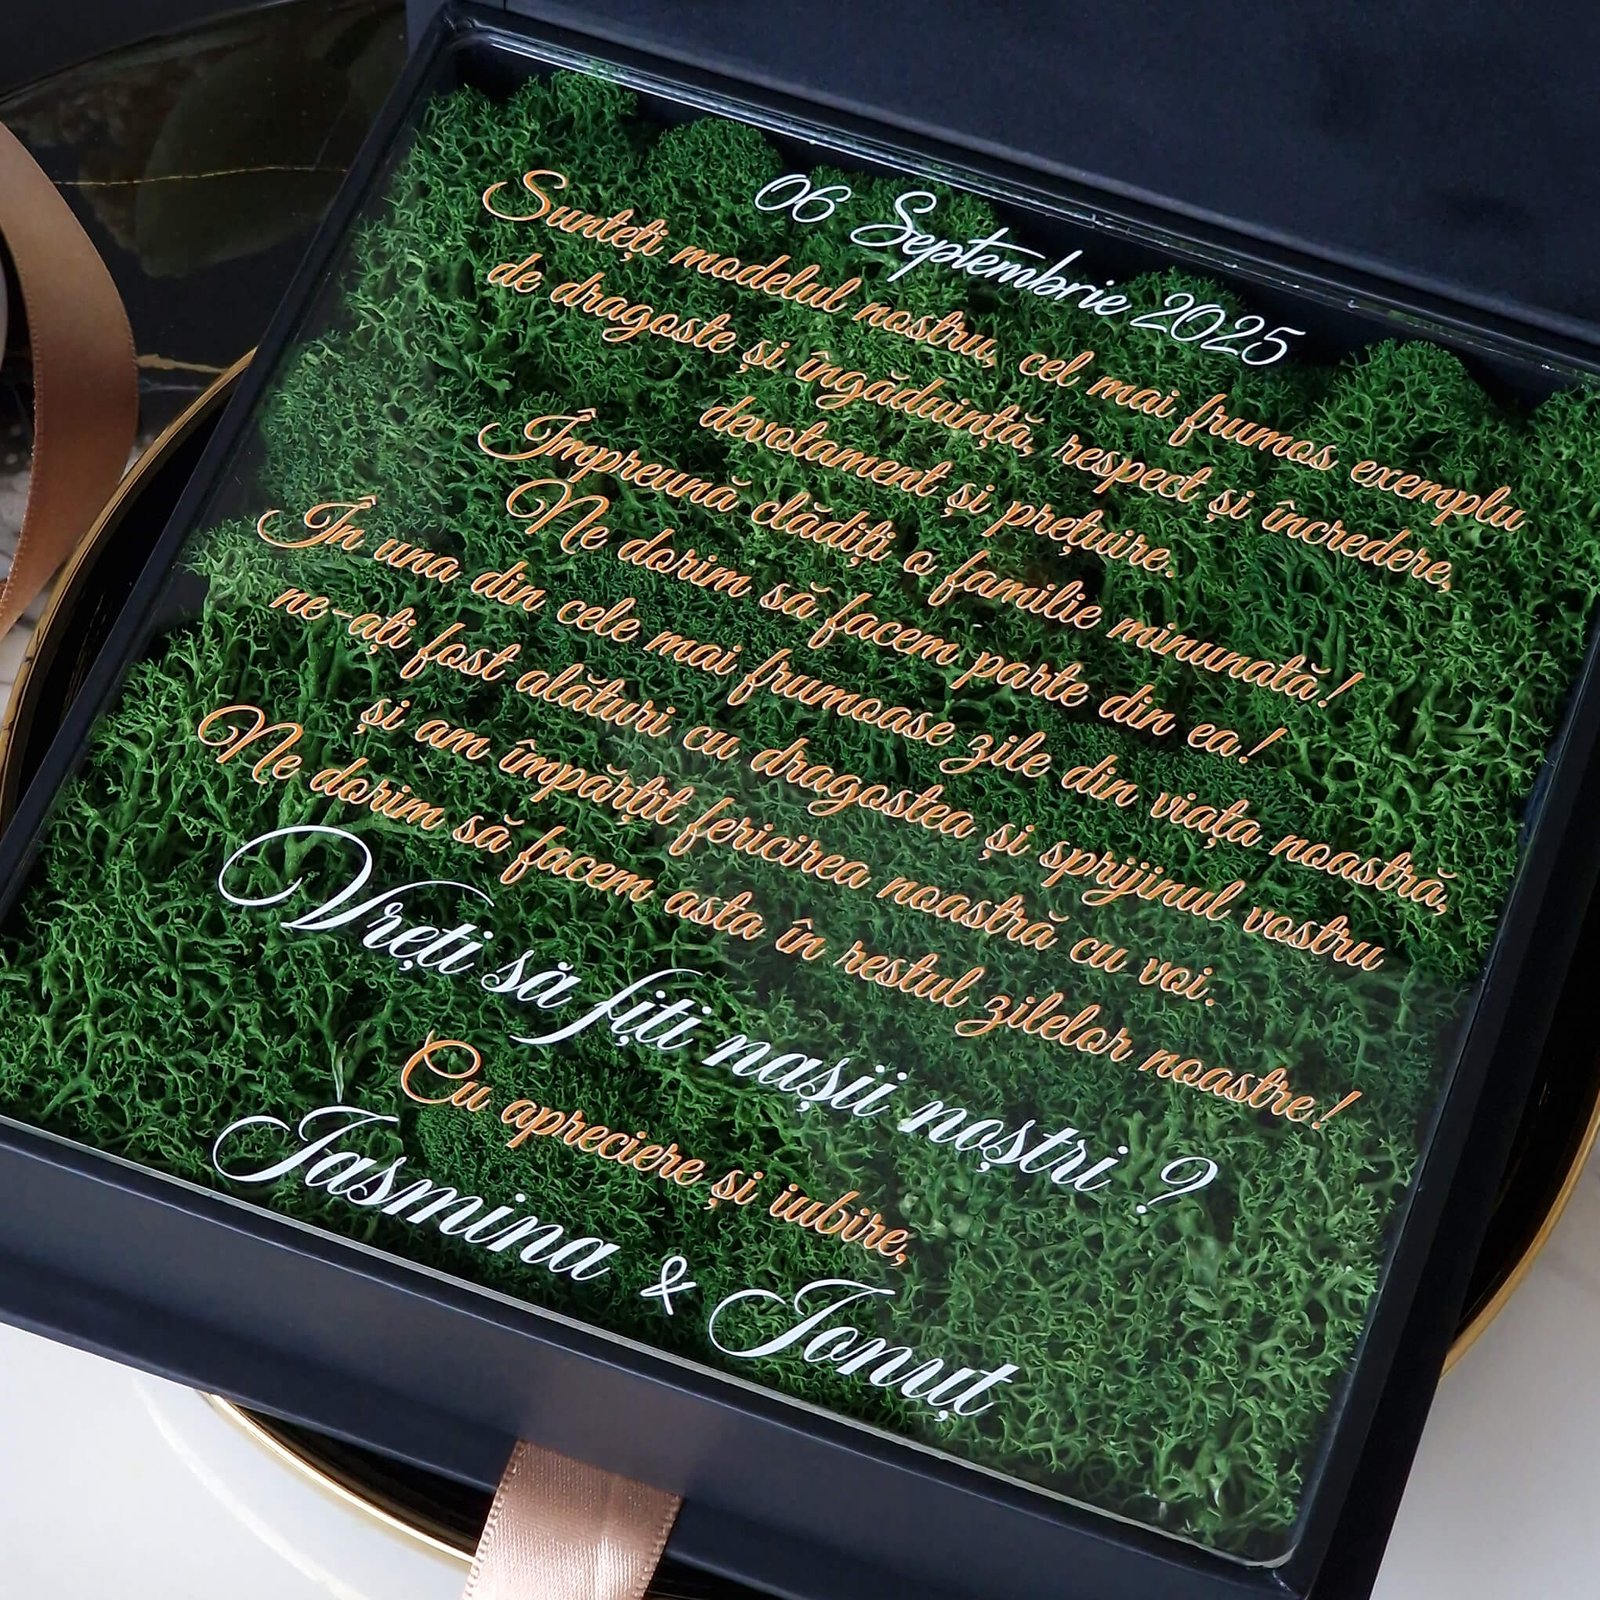 06 Septembrie 2025
Sunteți modelul nostru, cel mai frumos exemplu
de dragoste și îngăduință, respect și încredere,
devotament și prețuire.
Împreună clădiți o familie minunată!
Ne dorim să facem parte din ea!
În una din cele mai frumoase zile din viața noastră,
ne-ați fost alături cu dragostea și sprijinul vostru
și am împărțit fericirea noastră cu voi.
Ne dorim să facem asta în restul zilelor noastre!
Vreți să fiți nașii noștri ?
Cu apreciere și iubire,
Jasmina & Ionuț